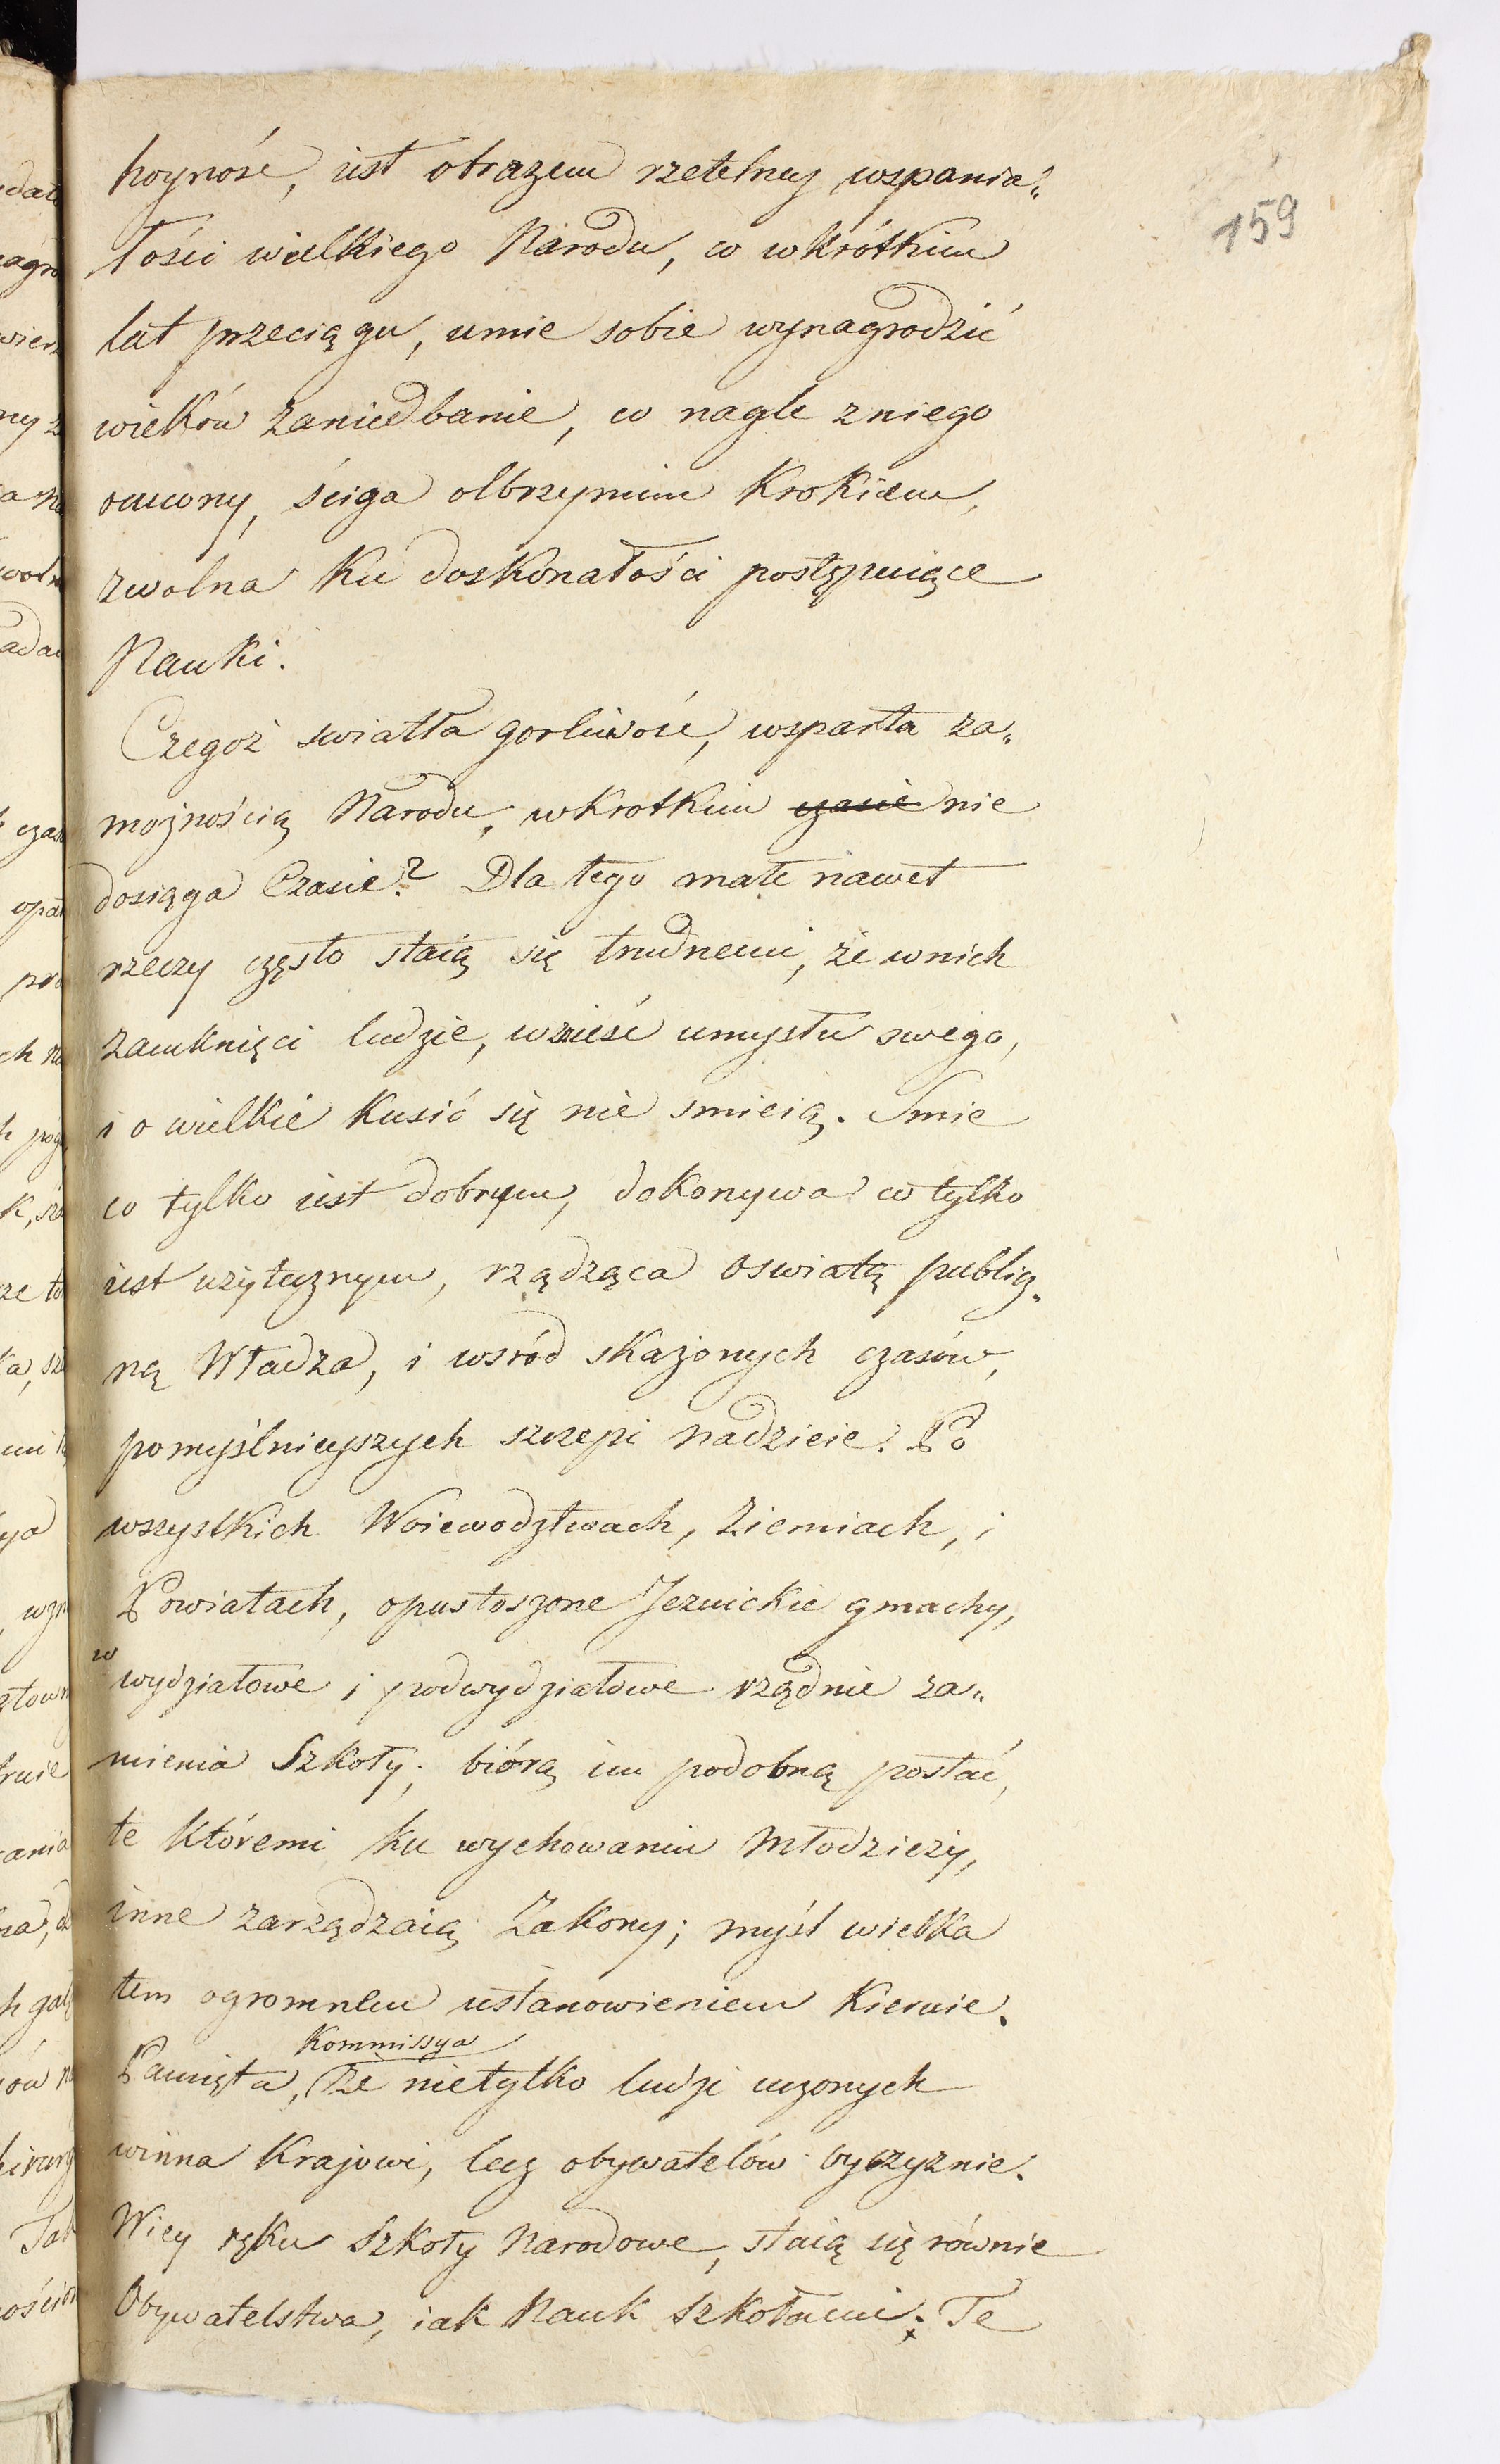 hoyność, iest obrazem rzetelney wspania„
łości wielkiego Narodu, co wkrótkim
lat przeciągu, umie sobie wynagrodzić
wieków zaniedbanie, co nagle zniego
ocucony, ściga olbrzymim krokiem,
zwolna ku doskonałości postępuiące
Nauki.
Czegoż swiatła gorliwość, wsparta za„
możnością Narodu, wkrotkim czasie nie
dosiąga Czasie? Dla tego małe nawet
rzeczy często staią się trudnemi, że wnich
zamknięci ludzie, wznieść umysłu swego,
i o wielkie kusić się nie smieią. Smie
co tylko iest dobrym, dokonywa co tylko
iest użytecznym, rządząca oswiatą publicz„
ną Władza, i wsród skażonych czasów,
pomyślnieyszych szczepi nadzieie. Po
wszystkich Woiewodztwach, Ziemiach, i
Powiatach, opustoszone Jezuickie gmachy,
w wydziałowe i podwydziałowe rządnie za„
mienia Szkoły; biórą im podobną postać,
te któremi ku wychowaniu Młodzieży,
inne zarządzaią Zakony; myśl wielka
tem ogromnem ustanowieniem kieruie.
Kommissya
Pamięta, że nietylko ludzi uczonych
winna Krajowi, lecz obywatelów oyczyznie.
Wiey ręku Szkoły Narodowe, staią się równie
Obywatelstwa, iak Nauk Szkołami; Te
159